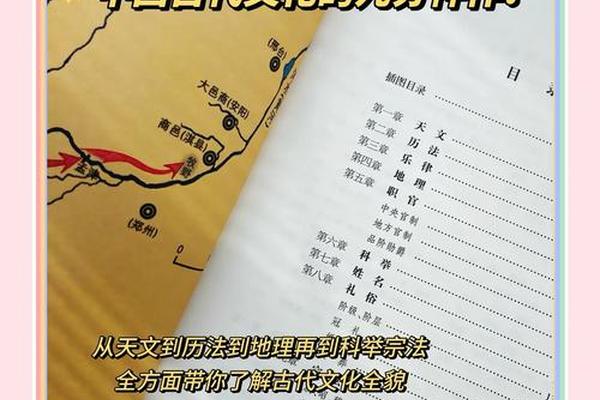 中国古代文化的
(邢台)
大邑商(安阳)
商邑(淇县)
牧野
孟津
(郑州)
0
目
插图目录
第一章 天文
第二章 历法
第三章 乐律
第四章 地理
第五章 职官
中央官制
地方官制
品阶勋爵
第六章 科举
第七章 姓名
第八章 礼俗
阶级、阶层
冠礼
从天文到历法到地理再到科举宗法
全方面带你了解古代文化全貌